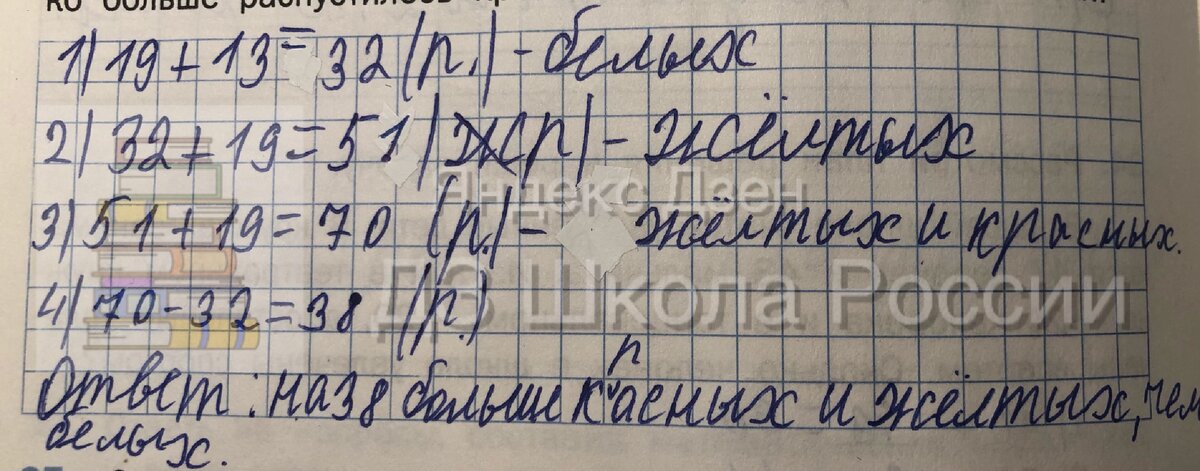 ко больше распустилось
1) 19 + 13 = 32 (р.) - белых
2) 32 + 19 = 51 (жр) - жёлтых
Яндекс Дзен
3) 51 + 19 = 70 (р.) - жёлтых и красных.
ДЗ Школа России
4) 70 - 32 = 38 (р.)
Ответ: на 38 больше красных и жёлтых, чем
белых.